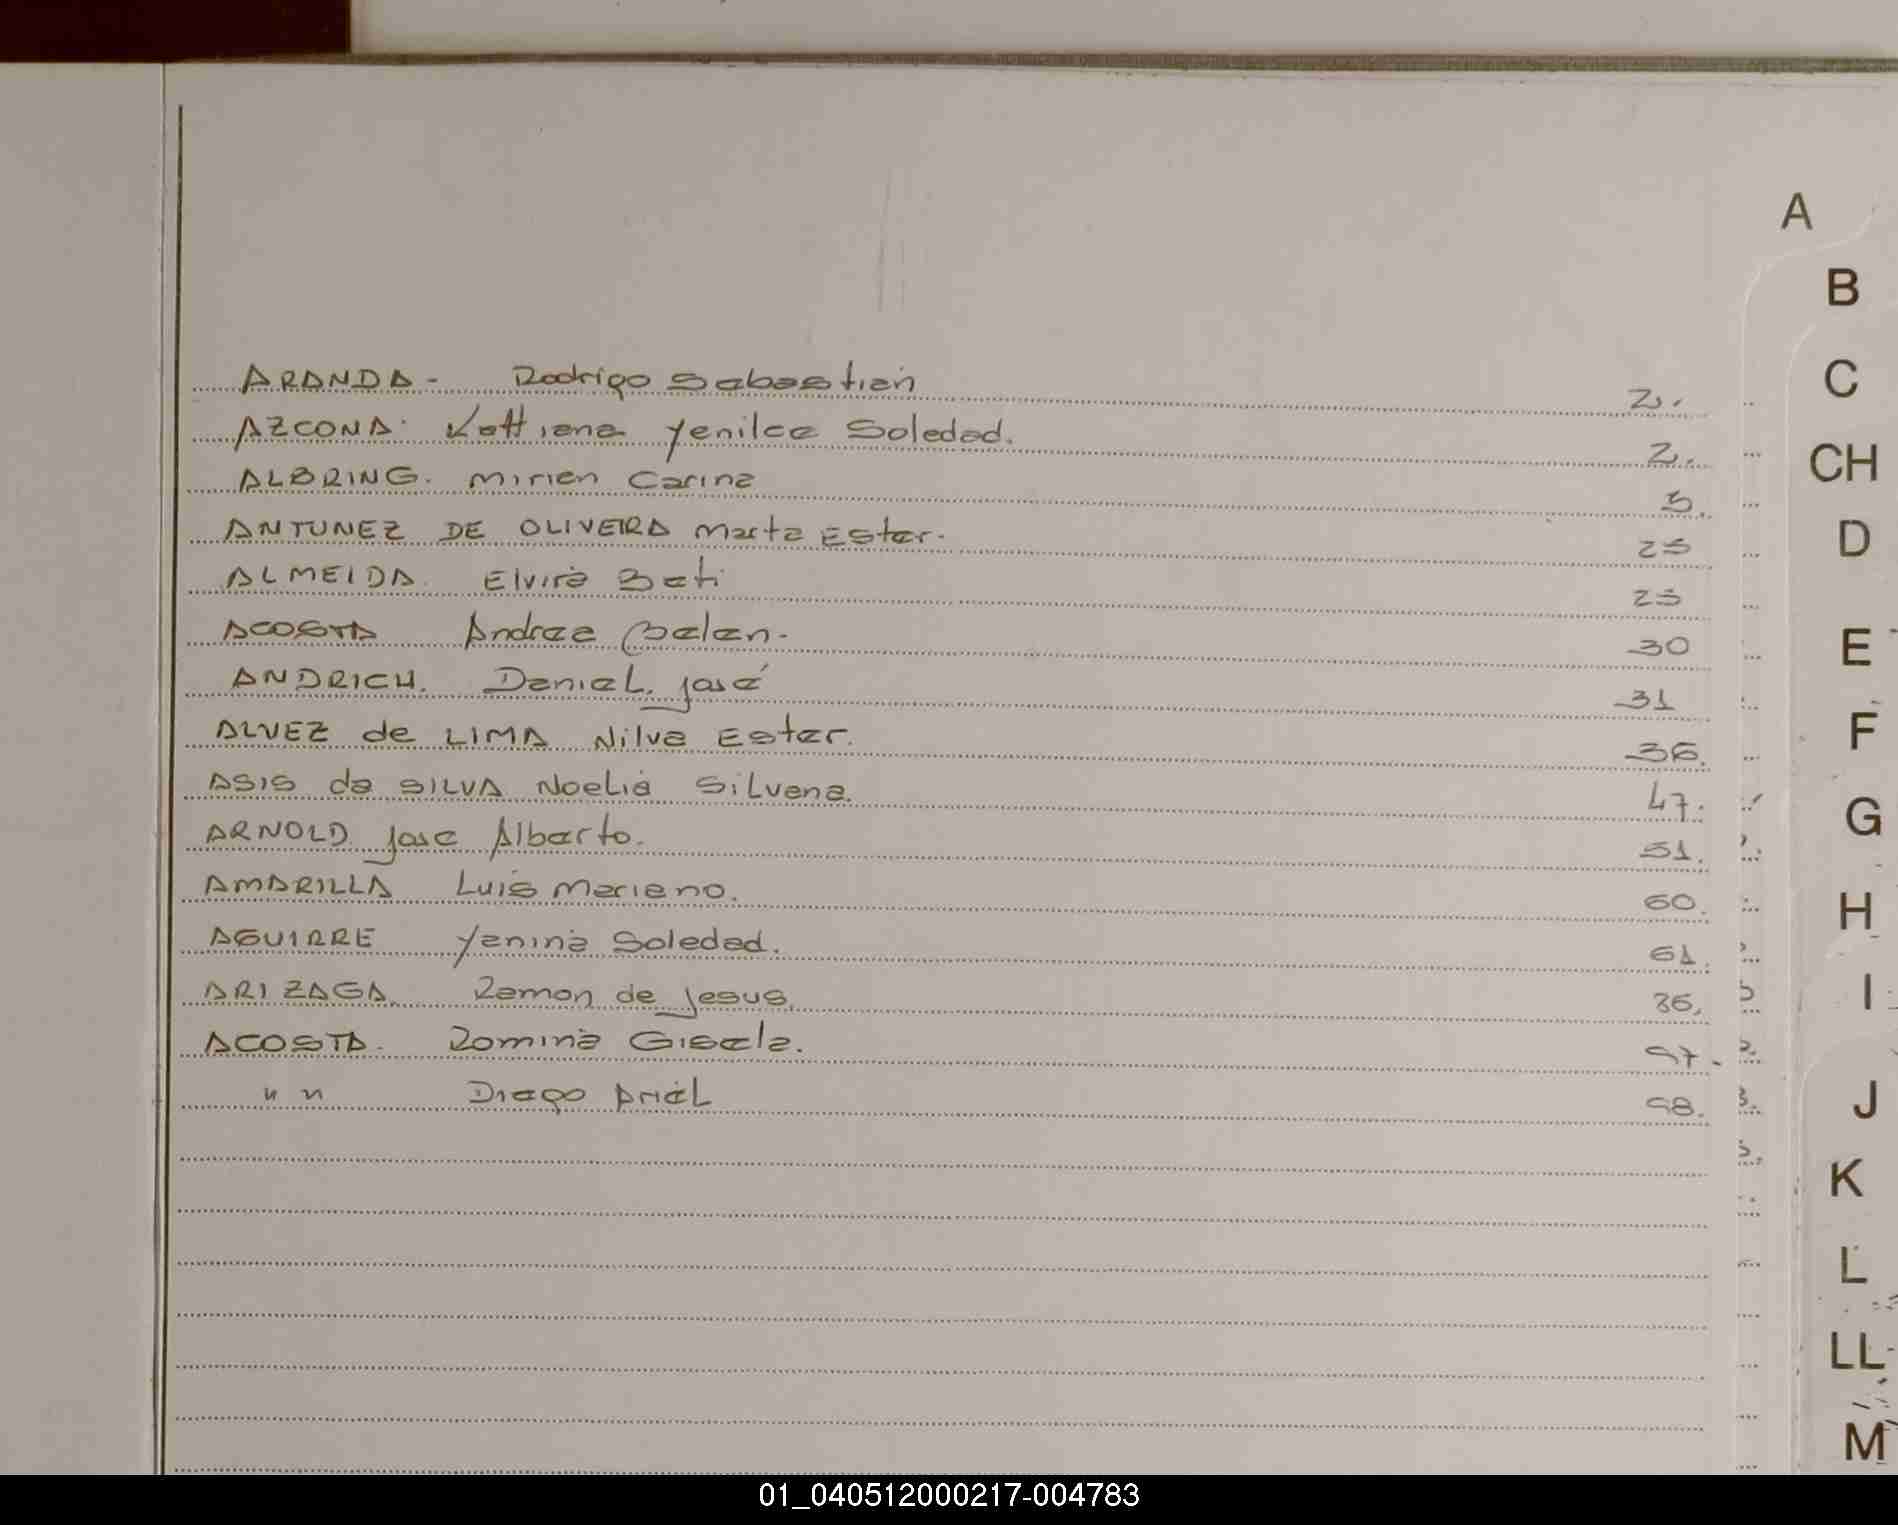 A
B
C
CH
D
E
F
G
H
I
J
K
L
LL
M
ARANDA- Rodrigo Sebastian 2.
AZCONA. Kattiana Yenilee Soledad. 2.
ALBRING. Mirien Carina 3.
ANTUNEZ DE OLIVEIRA Marta Ester. 25
ALMEIDA. Elvira Beti 25
ACOSTA Andrea Belen. 30
ANDRICH. Daniel José 31
ALVEZ de LIMA Nilva Ester. 36.
ASIS da SILVA Noelia Silvana. 47.
ARNOLD José Alberto. 51.
AMARILLA Luis Mariano. 60.
AGUIRRE Yanina Soledad. 61.
ARIZAGA. Ramon de Jesus. 36.
ACOSTA. Romina Gisela. 97.
" " Diego Ariel 98.
01_040512000217-004783